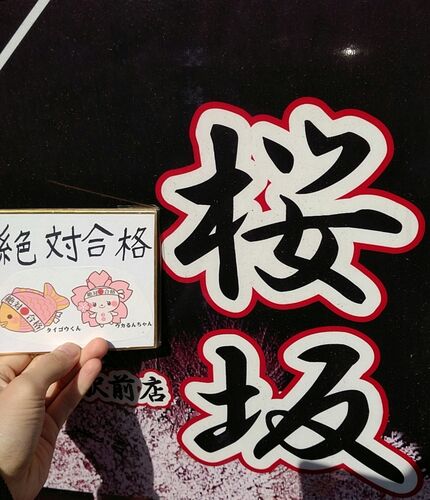 桜坂
駅前店
絶対合格
絶対合格
絶対合格
タイゴウくん
ウカるんちゃん